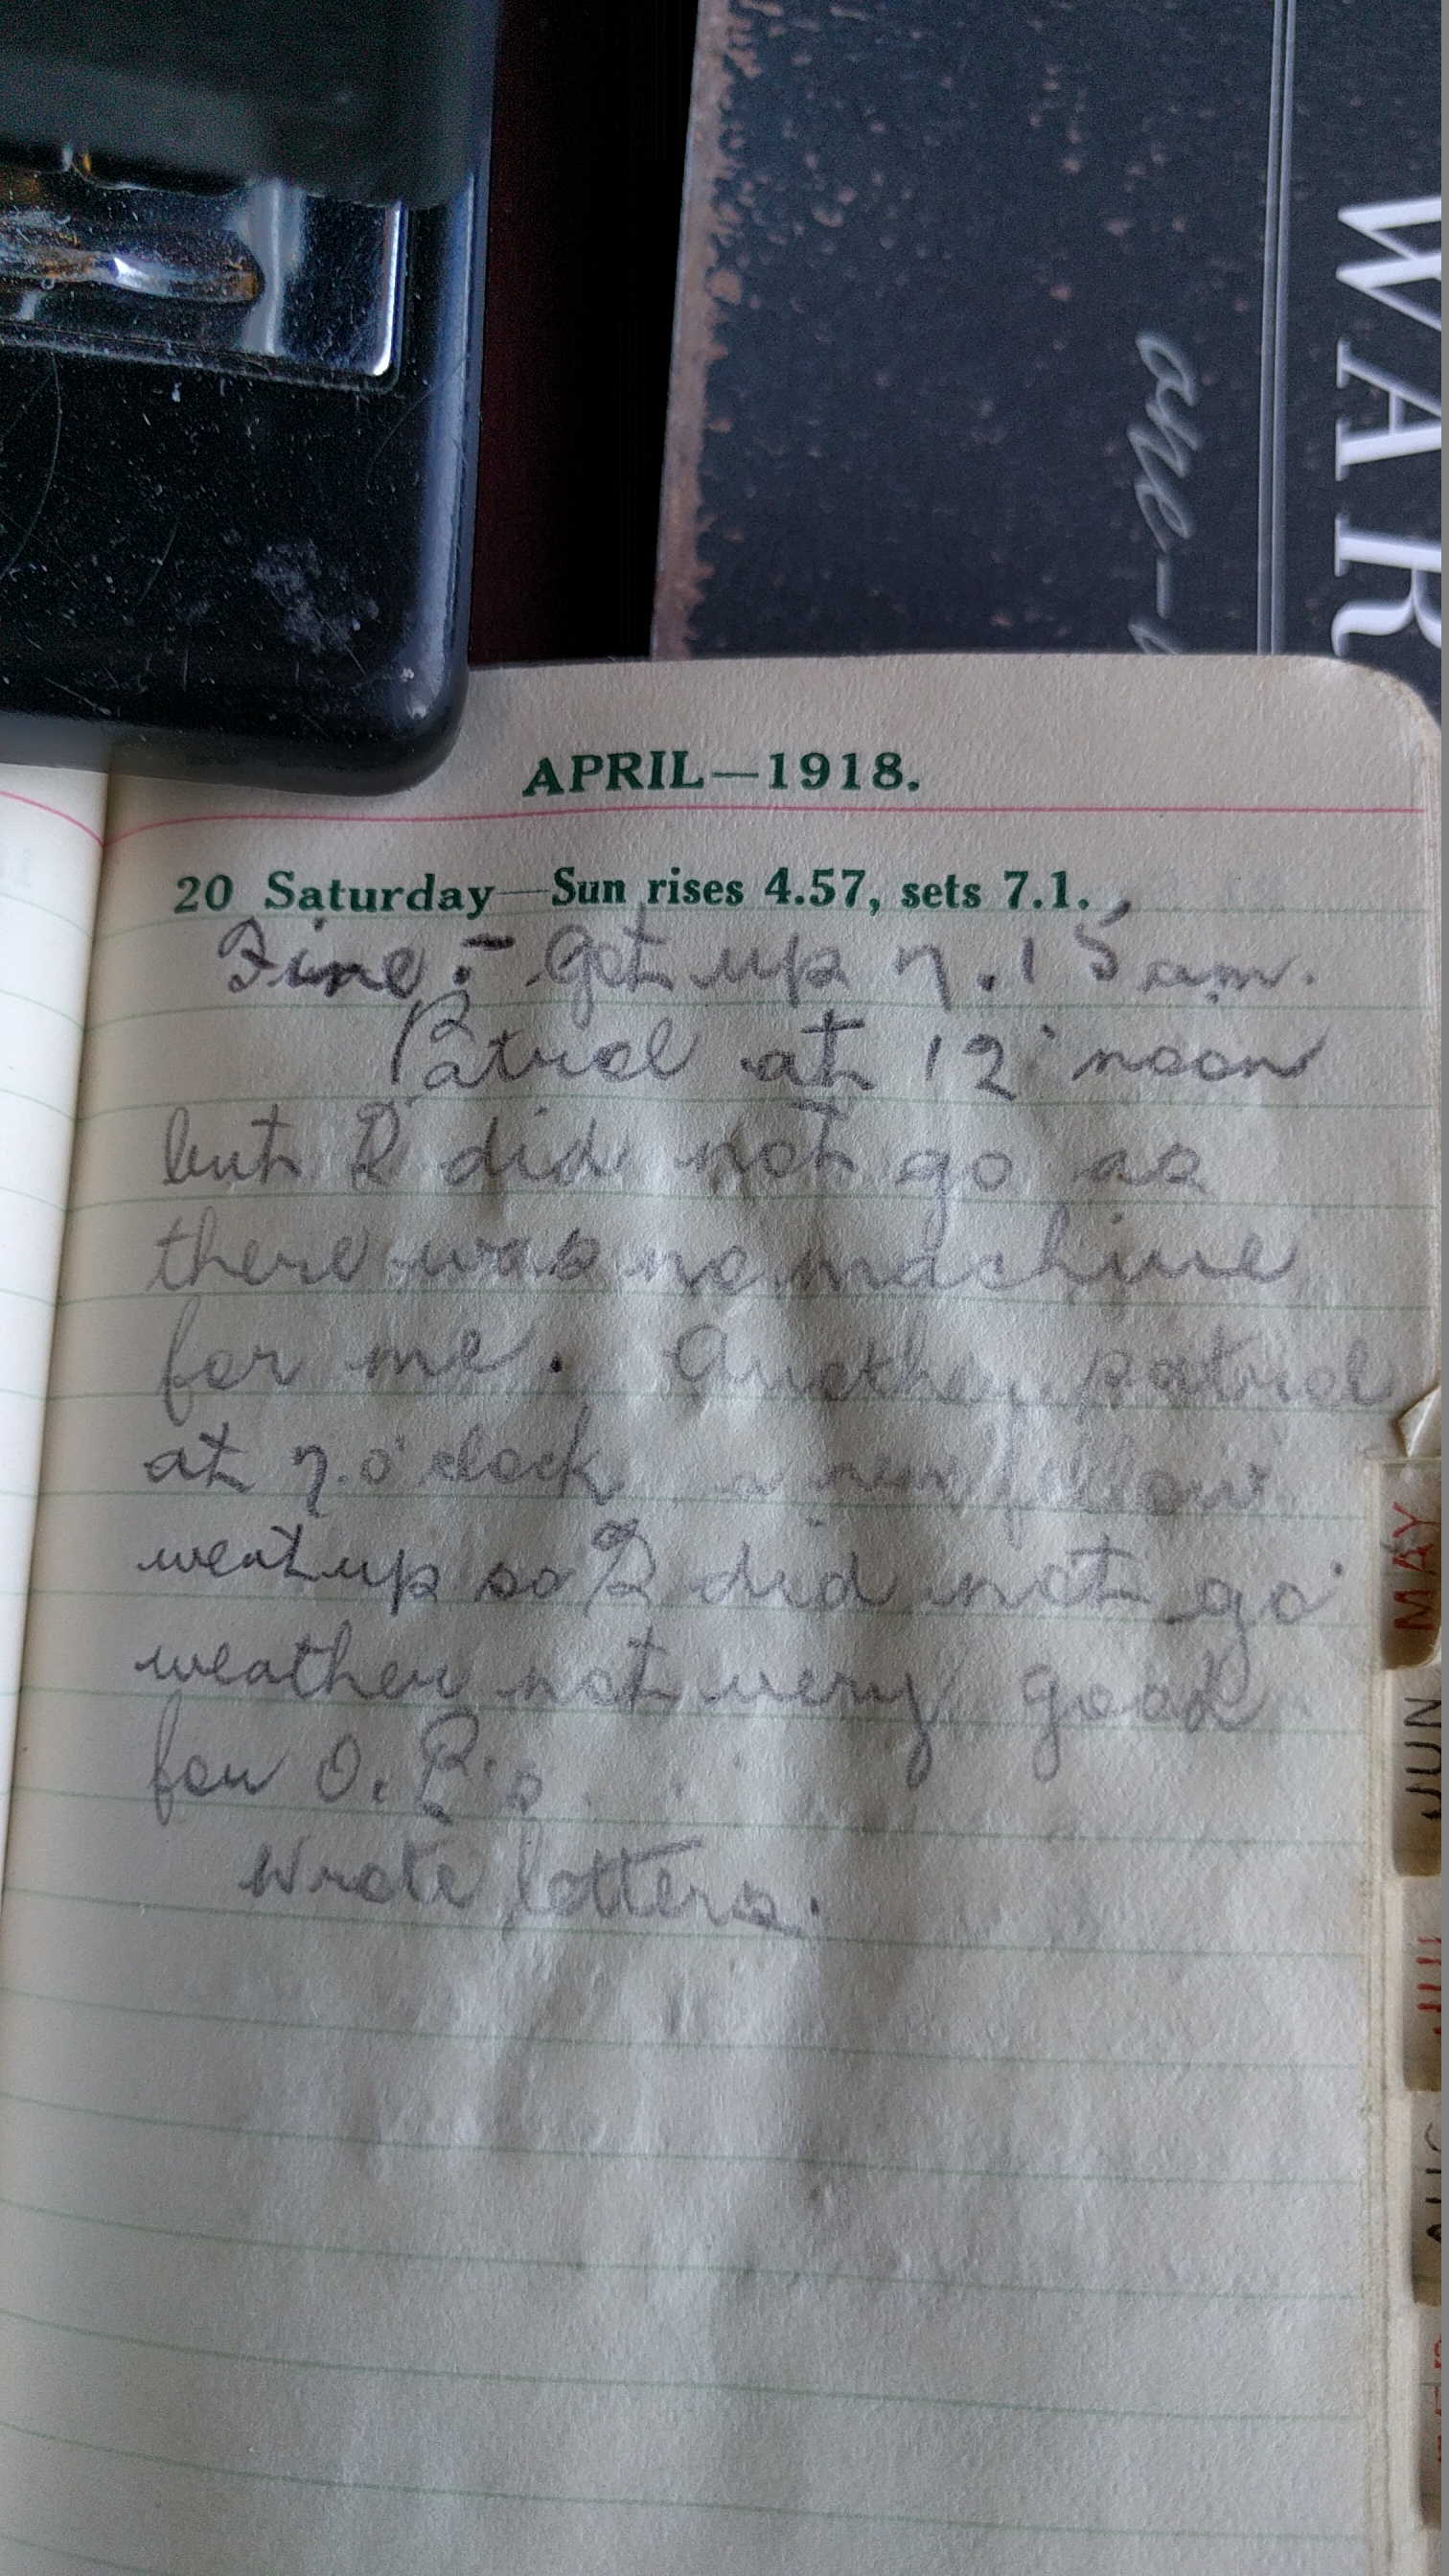 WAR
one-
APRIL—1918.
20 Saturday—Sun rises 4.57, sets 7.1.
Fine:- Got up 7.15 am.
Patrol at 12 noon
but I did not go as
there was no machine
for me. Another patrol
at 7.o'clock a new fellow
went up so I did not go
weather not very good
for O.P's
Wrote letters.
MAY
JUN